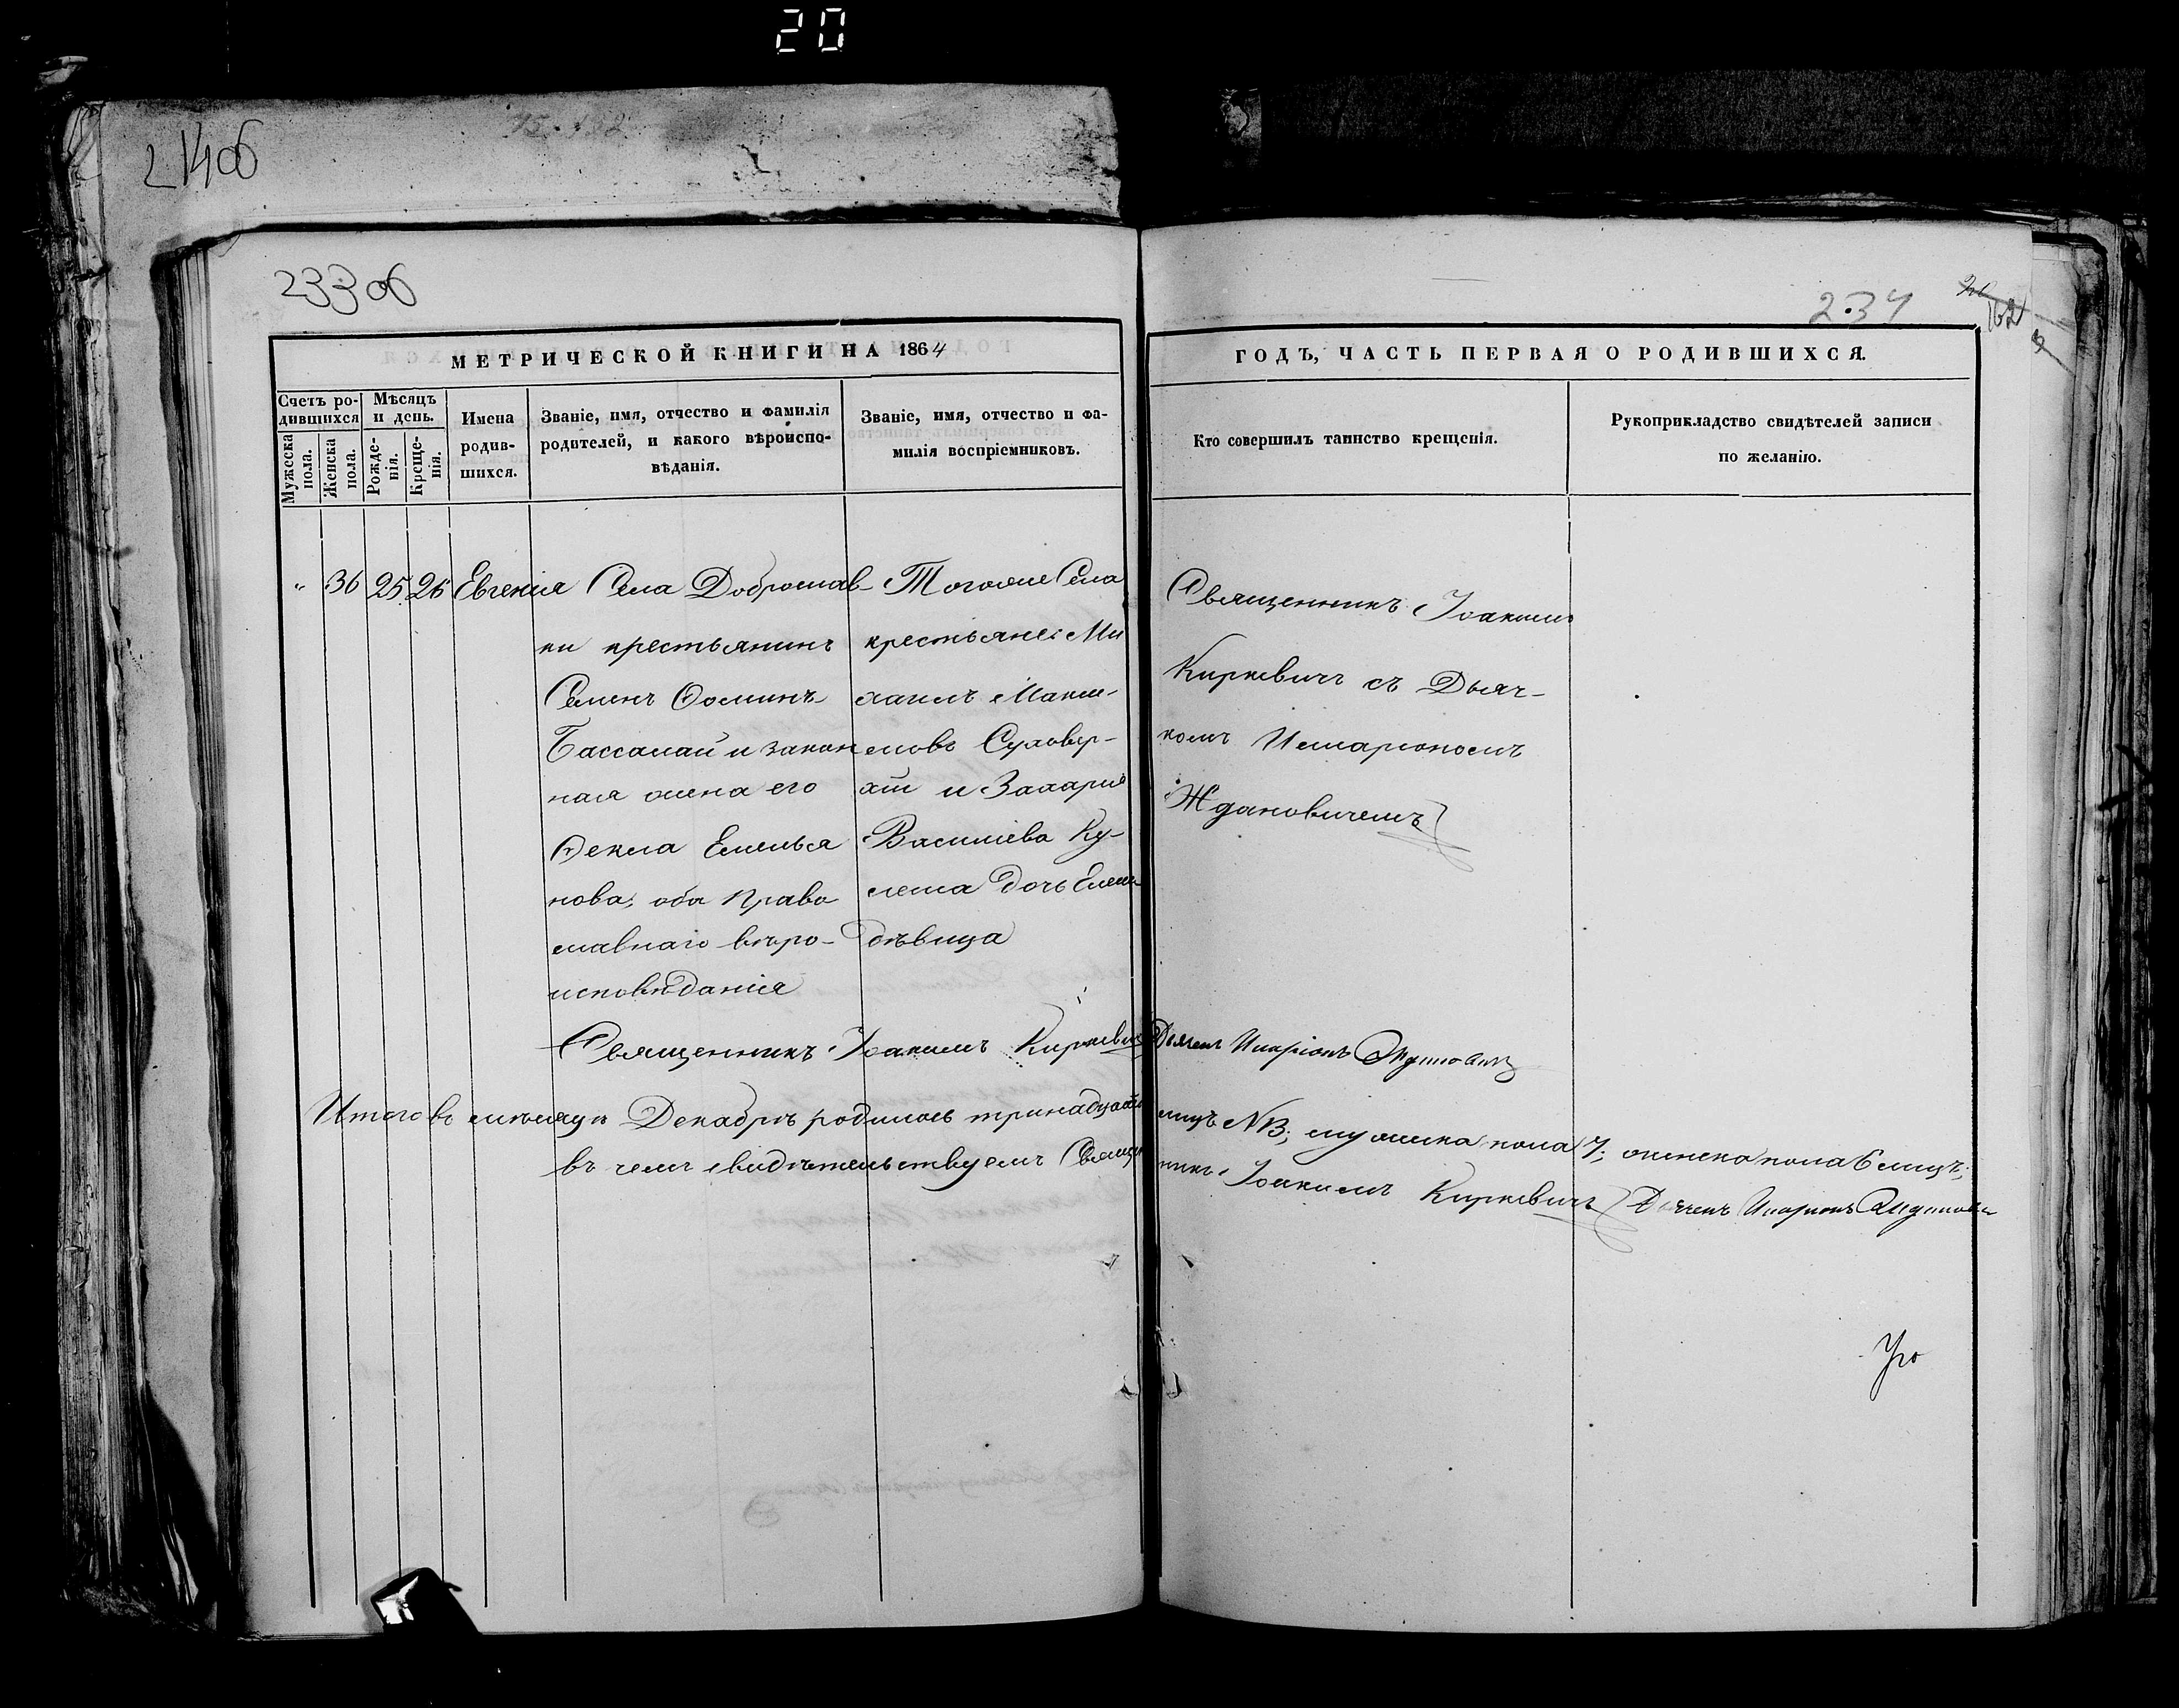 20
214 об
233 об
234
162
МЕТРИЧЕСКОЙ КНИГИ НА 1864
ГОДЪ, ЧАСТЬ ПЕРВАЯ О РОДИВШИХСЯ.
Счетъ ро-
дившихся
Мужеска
пола.
Женска
пола.
Мѣсяцъ
и день.
Рожде-
нія.
Креще-
нія.
Имена
родив-
шихся.
Званіе, имя, отчество и фамилія
родителей, и какого вѣроиспо-
вѣданія.
Званіе, имя, отчество и фа-
милія воспріемниковъ.
Кто совершилъ таинство крещенія.
Рукоприкладство свидѣтелей записи
по желанію.
„ 36 25 26 Евгенія
Села Доброслав-
ки крестьянинъ
Семенъ Ѳоминъ
Бассалай и закон
ная жена его
Ѳекла Емелья
нова, оба Право
славнаго вѣро-
исповѣданія
Тогоже Села
крестьяне: Ми
хаилъ Макси-
мовъ
и Захарія
Василіева Ку-
леша дочь Елена
дѣвица
Священникъ Іоакимъ
Киркевичъ съ Дьяч-
комъ Илларіономъ
Ждановичемъ
Священникъ Іоакимъ Киркевичъ Дьячекъ Иларіонъ Ждановичъ
Итого въ мѣсяцѣ Декабрѣ родилось тринадцать лицъ NB; мужеска пола 7; женска пола 6 лицъ;
въ чемъ свидѣтельствуемъ Священникъ Іоакимъ Киркевичъ Дьячекъ Иларіонъ Жданович